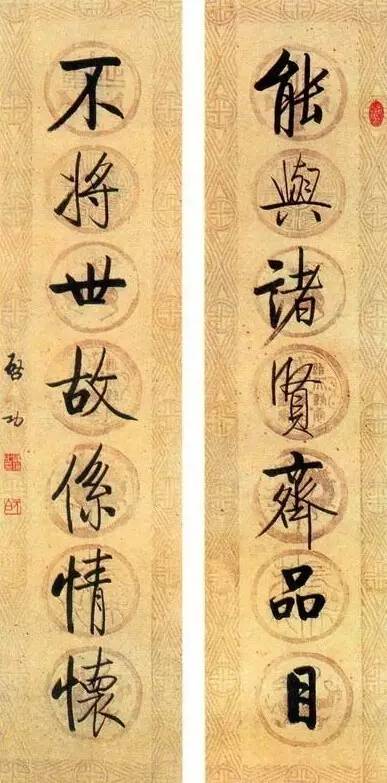 能與諸賢齊品目
不将世故係情懷
啓功